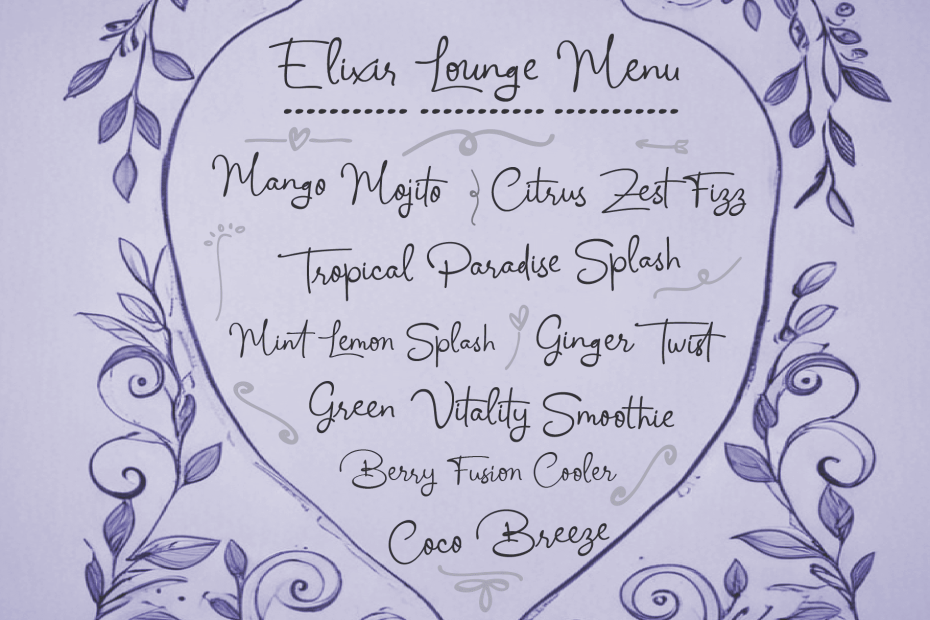 Elixir Lounge Menu
Mango Mojito Citrus Zest Fizz
Tropical Paradise Splash
Mint Lemon Splash Ginger Twist
Green Vitality Smoothie
Berry Fusion Cooler
Coco Breeze